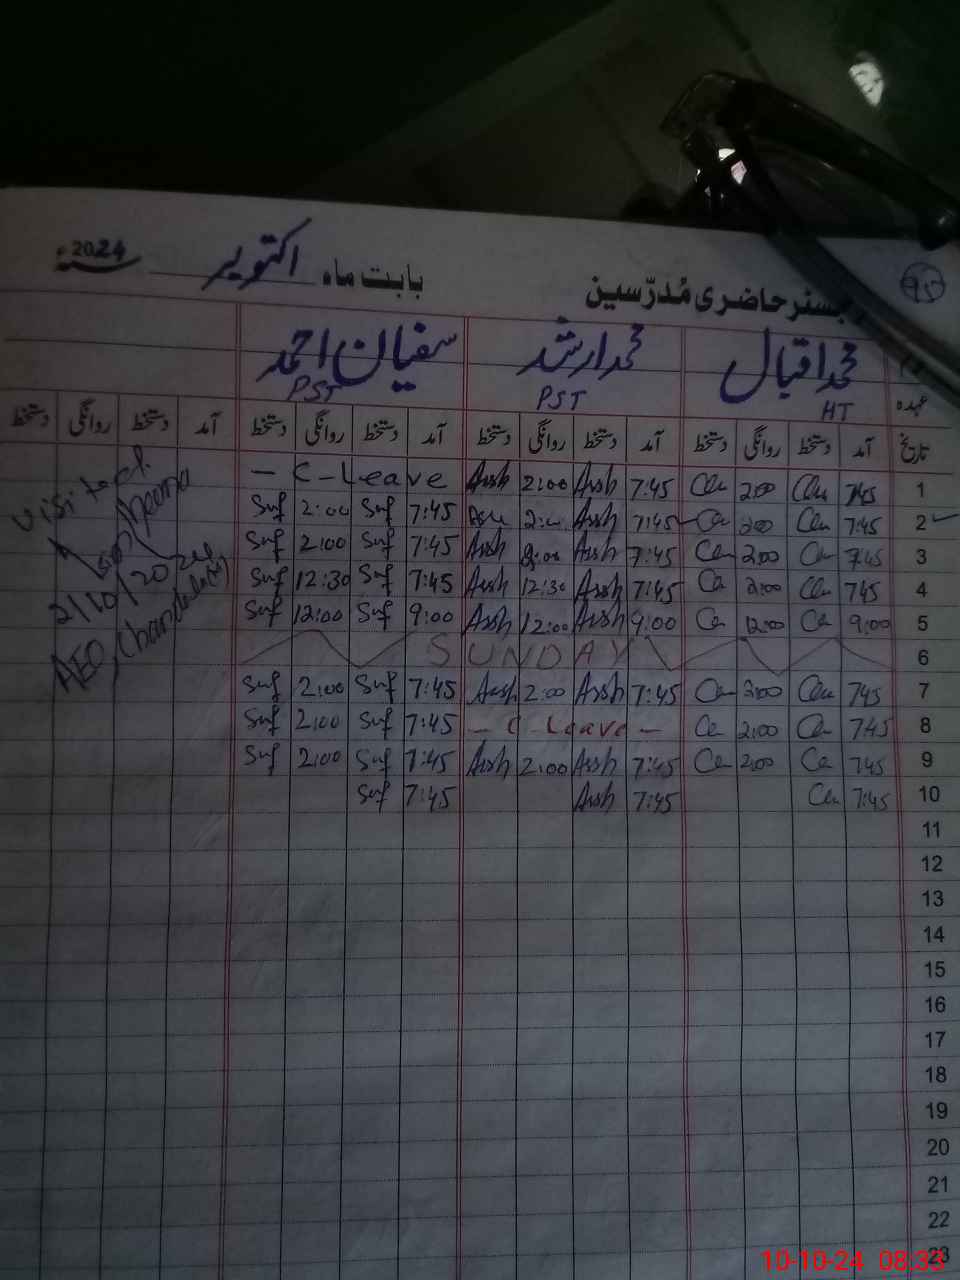 95
رجسٹر حاضری مُدرّسین بابت ماہ اکتوبر 2024ء
محمد اقبال محمد ارشد سفیان احمد
عہدہ HT PST PST
تاریخ آمد دستخط روانگی دستخط آمد دستخط روانگی دستخط آمد دستخط روانگی دستخط آمد دستخط روانگی دستخط
1 7:45 2:00 7:45 Arsh 2:00 Arsh - C-Leave
2 7:45 2:00 7:45 Arsh 2:00 7:45 Suf 2:00 Suf
3 7:45 2:00 7:45 Arsh 2:00 Arsh 7:45 Suf 2:00 Suf
4 7:45 2:00 7:45 Arsh 12:30 Arsh 7:45 Suf 12:30 Suf
5 9:00 12:00 9:00 Arsh 12:00 Arsh 9:00 Suf 12:00 Suf
6 SUNDAY
7 7:45 2:00 7:45 Arsh 2:00 Arsh 7:45 Suf 2:00 Suf
8 7:45 2:00 - C-Leave - 7:45 Suf 2:00 Suf
9 7:45 2:00 7:45 Arsh 2:00 Arsh 7:45 Suf 2:00 Suf
10 7:45 7:45 Arsh 7:45 Suf
11
12
13
14
15
16
17
18
19
20
21
22
23
Visited
2/10/2024
AEO
10-10-24 08:33